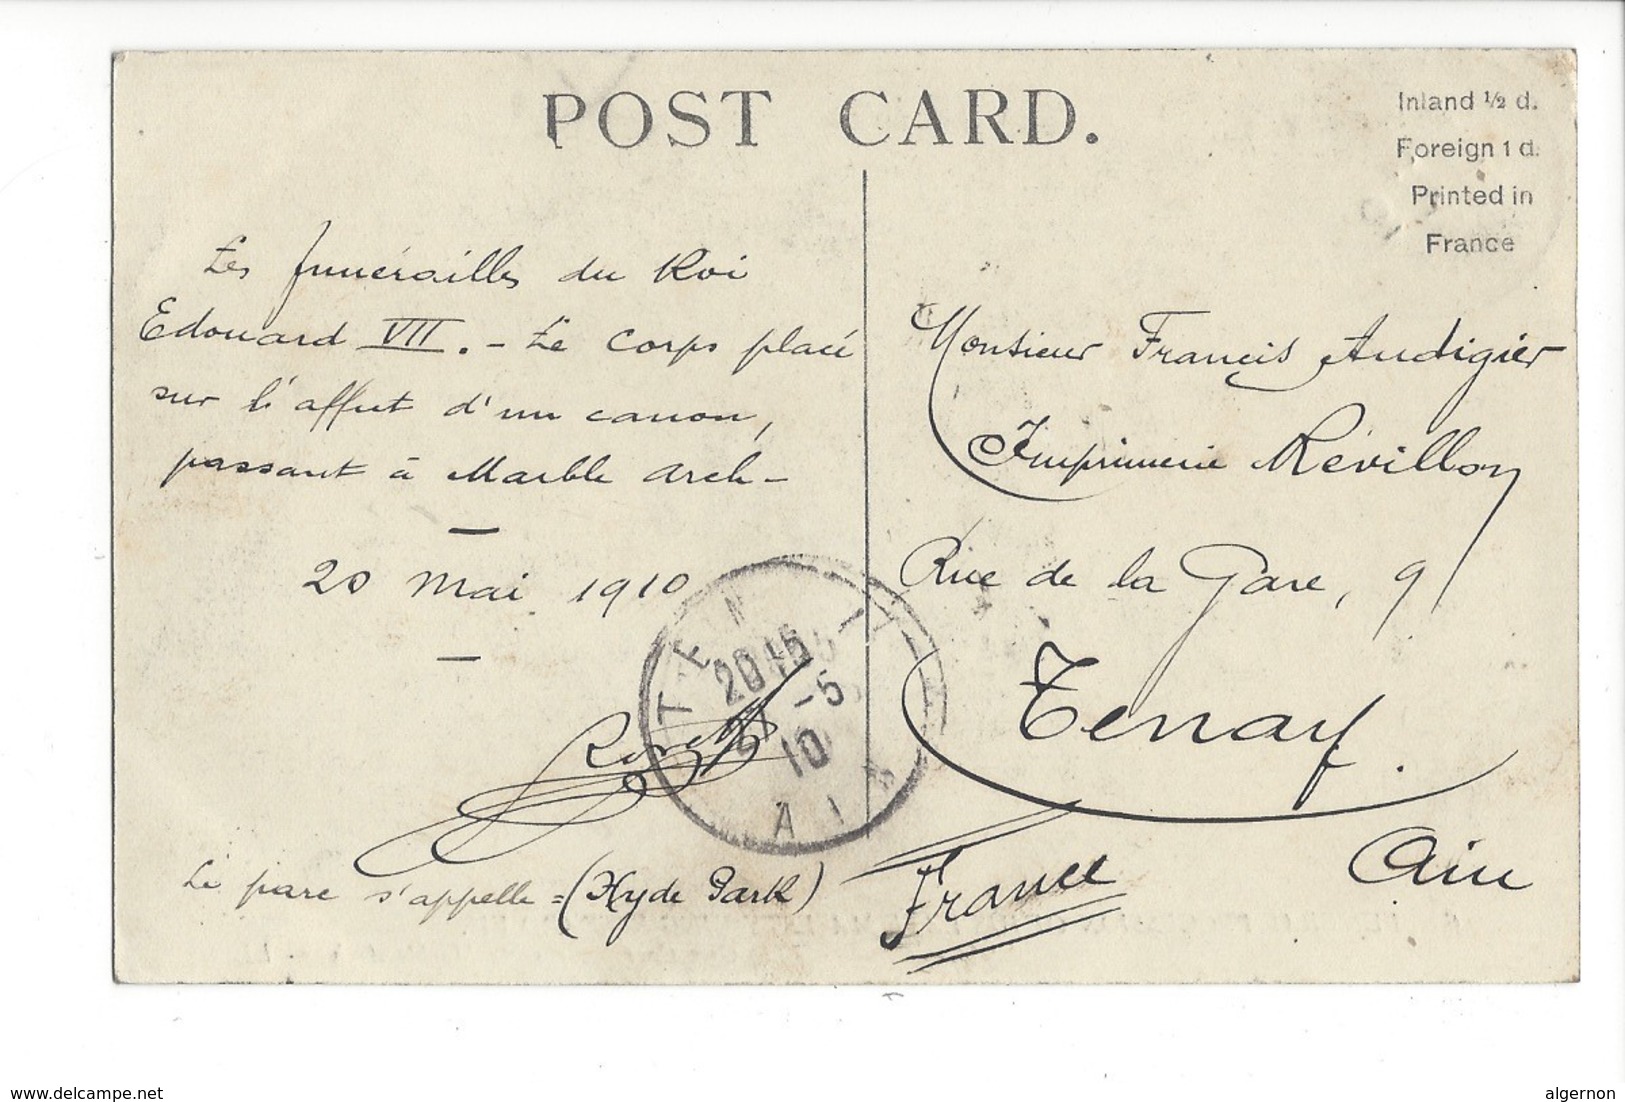 POST CARD.
Inland ½ d.
Foreign 1 d.
Printed in
France
Les funérailles du Roi
Edouard VII. - Le corps placé
sur l'affut d'un canon,
passant à Marble Arch -
20 Mai 1910
Le parc s'appelle = (Hyde Park)
Monsieur Francis Audigier
Imprimerie Révillon
Rue de la Gare, 9
Tenay.
Ain
France
TENAY
5
10
AIN
www.delcampe.net
algernon